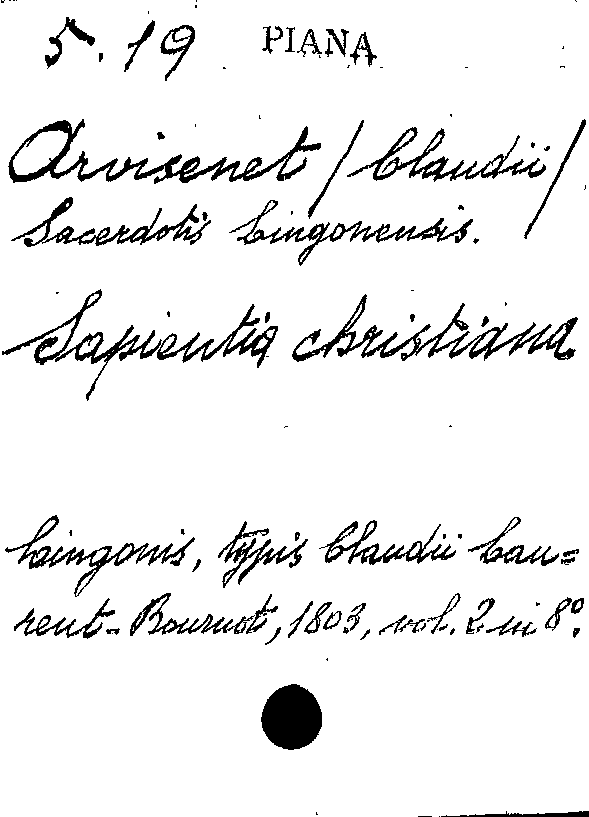 5.19 PIANA
Arvisenet / Claudii /
Sacerdotis Lingonensis.
Sapientia christiana
Lingonis, typis Claudii Lau=
rent-Bournot, 1803, vol. 2 in 8º.